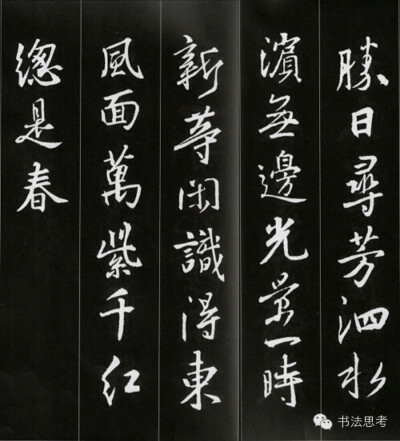 勝日尋芳泗水
濱無邊光景一時
新等閑識得東
風面萬紫千紅
總是春
书法思考